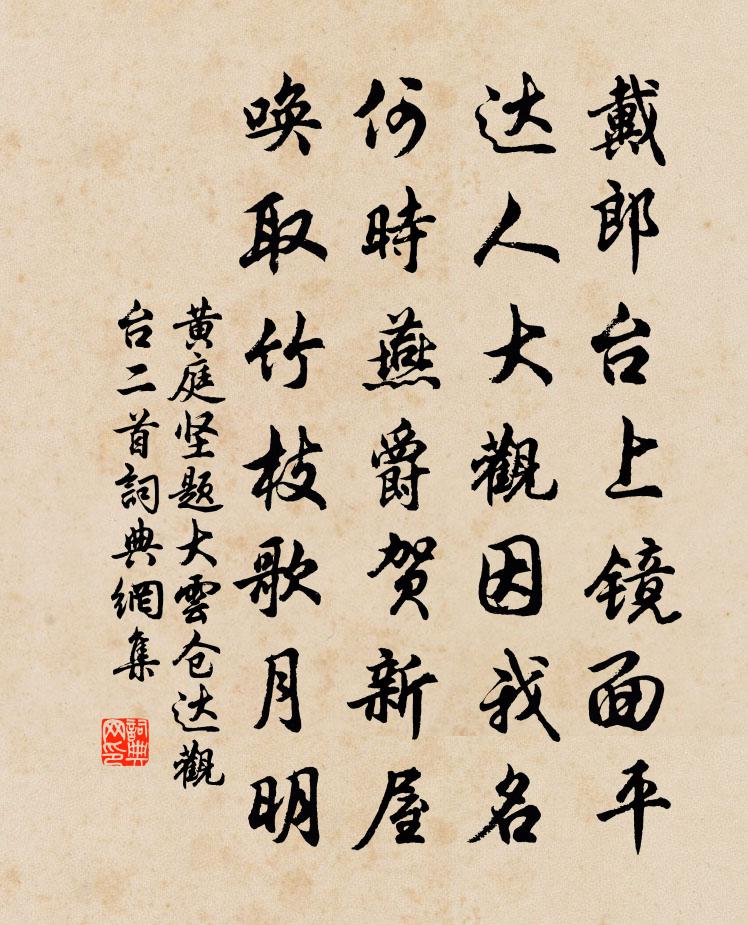 戴郎台上镜面平
达人大觀因我名
何時燕爵贺新屋
唤取竹枝歌月明
黄庭坚题大雲仓达觀
台二首詞典網集
詞典
网印